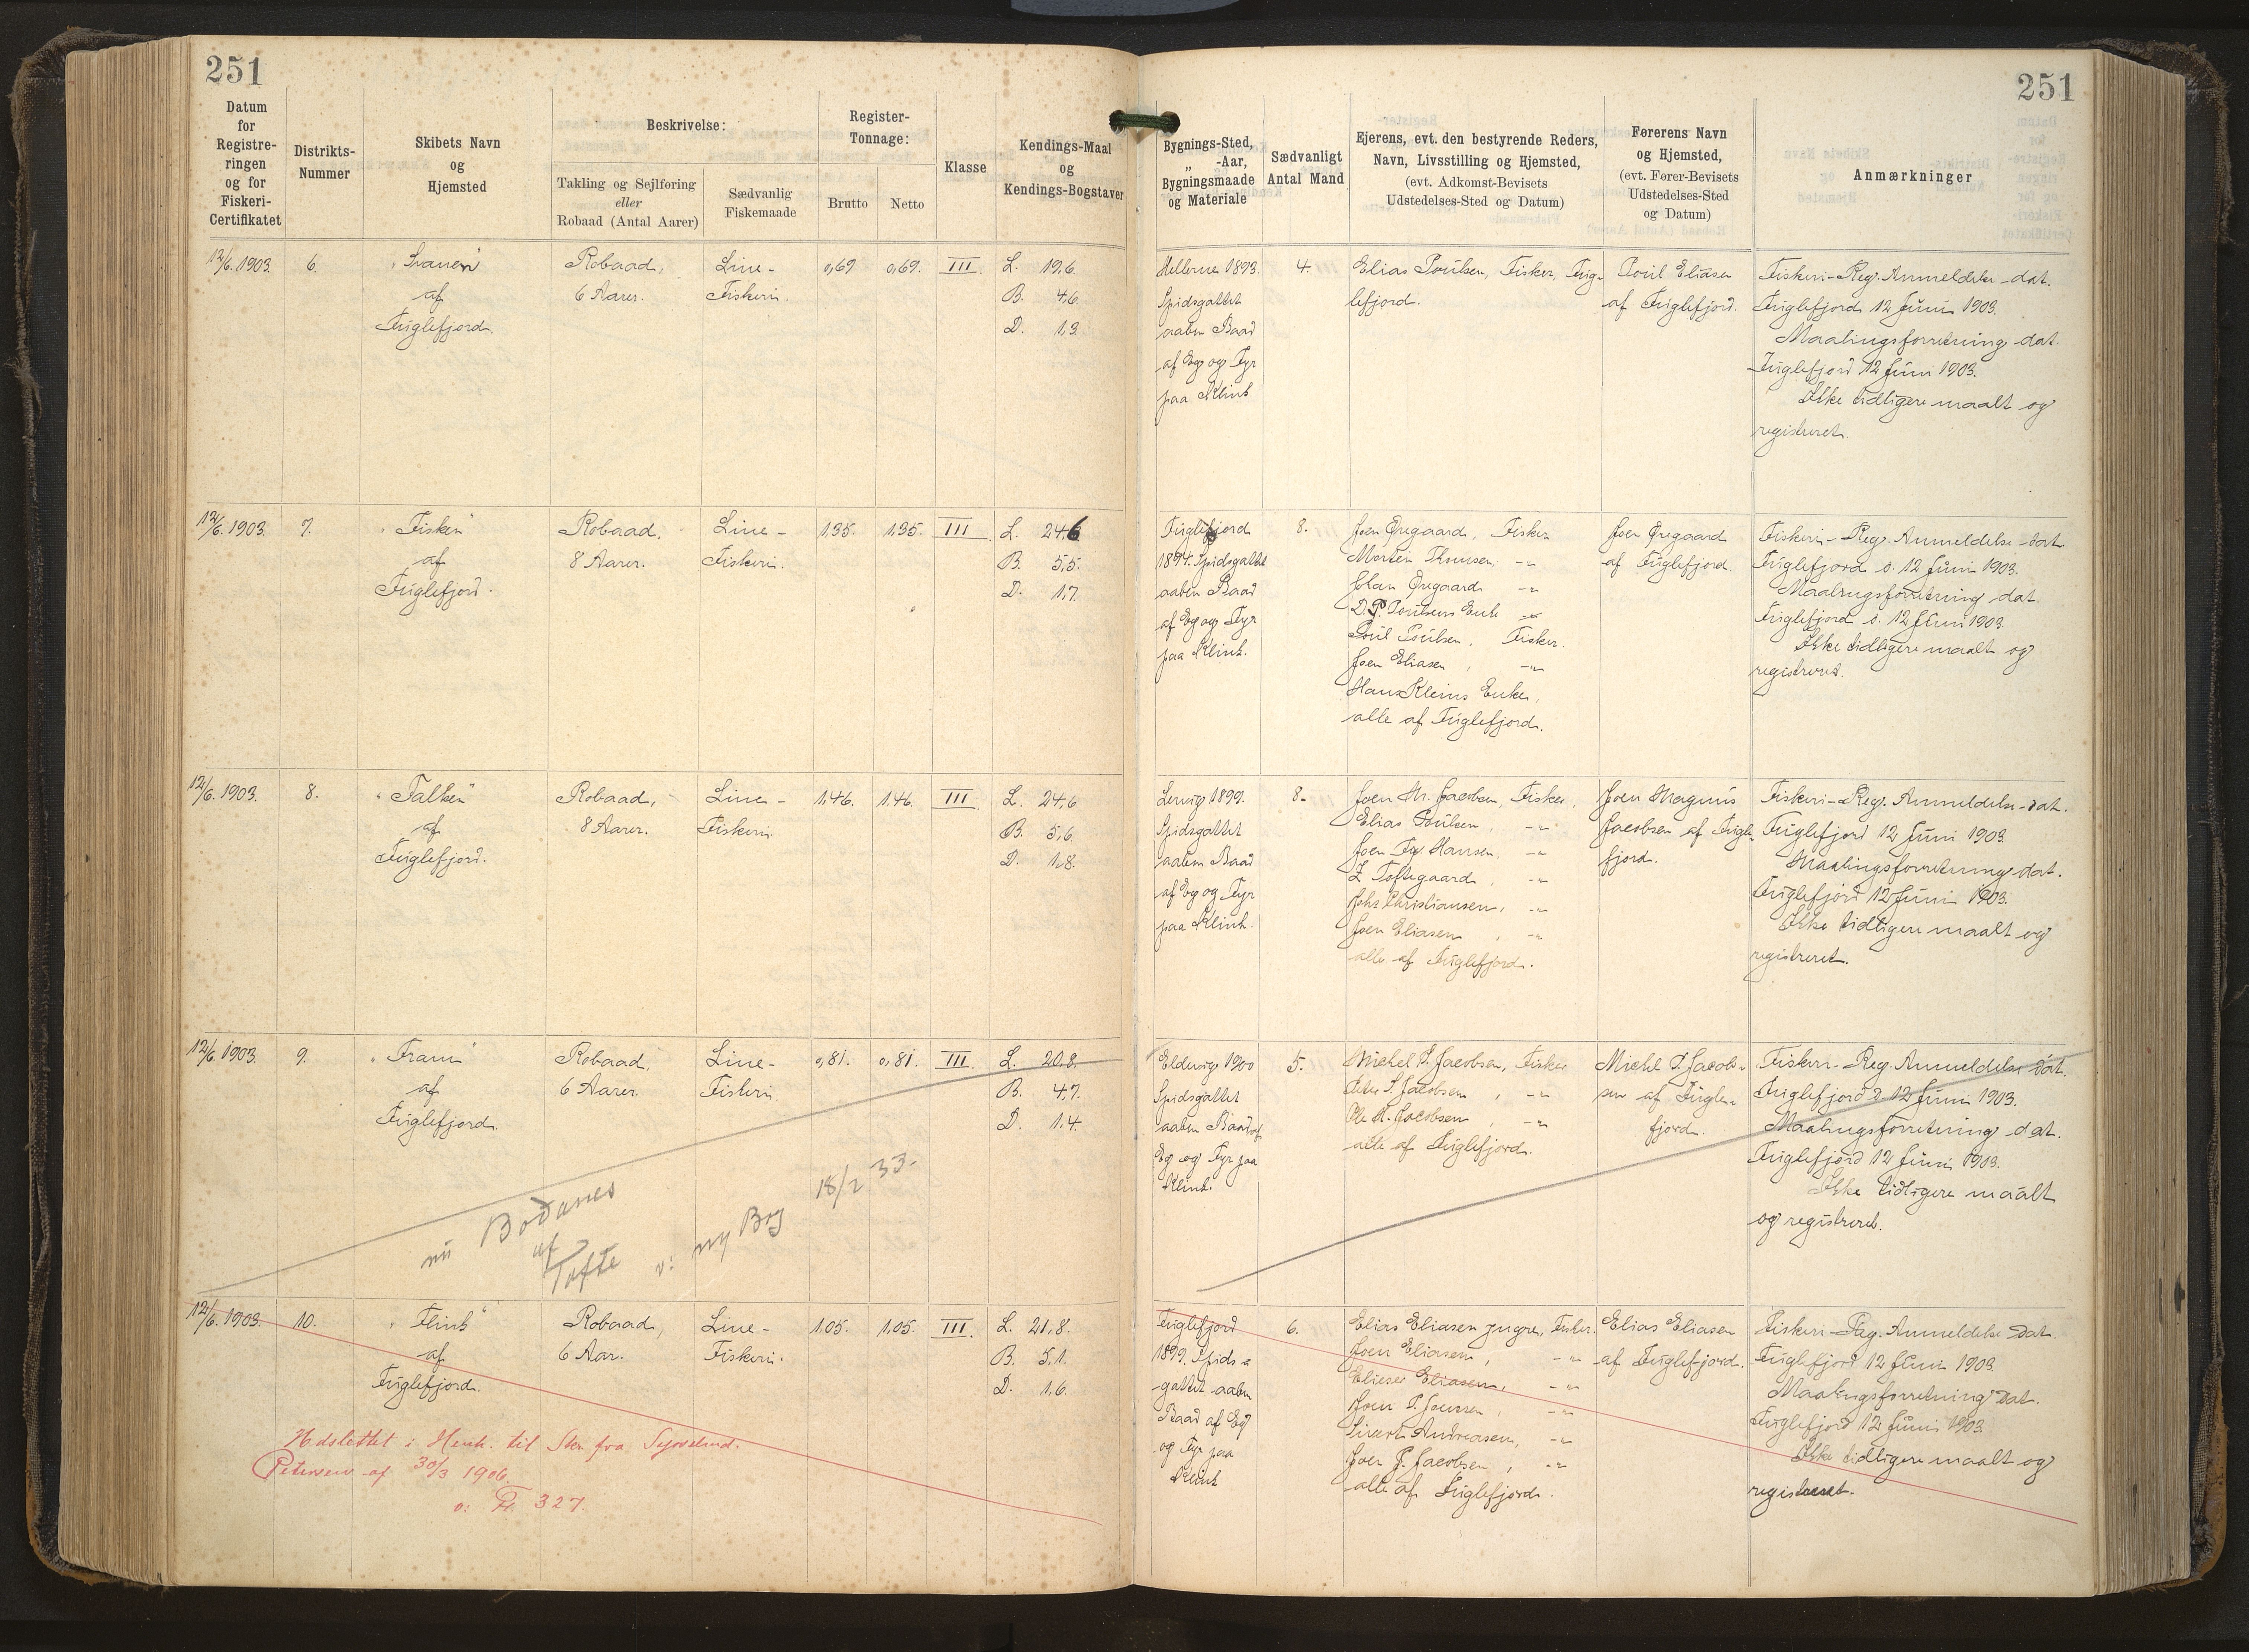 251
251
Datum
for
Registre-
ringen
og for
Fiskeri-
Certifikatet
Distrikts-
Nummer
Skibets Navn
og
Hjemsted
Beskrivelse:
Takling og Sejlføring
eller
Robaad (Antal Aarer)
Sædvanlig
Fiskemaade
Register-
Tonnage:
Brutto
Netto
Klasse
Kendings-Maal
og
Kendings-Bogstaver
Bygnings-Sted,
„ -Aar,
Bygningsmaade
og Materiale
Sædvanligt
Antal Mand
Ejerens, evt. den bestyrende Reders,
Navn, Livsstilling og Hjemsted,
(evt. Adkomst-Bevisets
Udstedelses-Sted og Datum)
Førerens Navn
og Hjemsted,
(evt. Fører-Bevisets
Udstedelses-Sted
og Datum)
Anmærkninger
12/6. 1903.
6.
"Svanen"
af
Fuglefjord.
Robaad,
6 Aarer.
Line-
Fiskeri.
0,69
0,69.
III.
L. 19,6.
B. 4,6.
D. 1,3.
Hellerne 1893.
Spidsgattet
aaben Baad
af Eg og Fyr
paa Klink
4.
Elias Poulsen, Fisker, Fug-
lefjord.
Poul Eliasen
af Fuglefjord.
Fiskeri-Reg. Anmeldelse dat.
Fuglefjord 12 Juni 1903.
Maalingsforretning dat.
Fuglefjord 12 Juni 1903.
Ikke tidligere maalt og
registreret.
12/6. 1903.
7.
"Fisken"
af
Fuglefjord.
Robaad,
8 Aarer.
Line-
Fiskeri.
1,35.
1,35.
III.
L. 24,6
B. 5,5.
D. 1,7.
Fuglefjord
1894. Spidsgattet
aaben Baad
af Eg og Fyr
paa Klink.
8.
Joen Øregaard, Fisker
Morten Thomsen, -"-
Johan Øregaard -"-
D. P. Poulsens Enke -"-
Poul Poulsen, Fisker.
Joen Eliasen, -"-
Hans Kleins Enke,
alle af Fuglefjord.
Joen Øregaard
af Fuglefjord.
Fiskeri-Reg. Anmeldelse dat.
Fuglefjord d. 12 Juni 1903.
Maalingsforretning dat.
Fuglefjord d. 12 Juni 1903.
Ikke tidligere maalt og
registreret.
12/6. 1903.
8.
"Falken"
af
Fuglefjord.
Robaad,
8 Aarer.
Line-
Fiskeri.
1,46.
1,46.
III.
L. 24,6
B. 5,6.
D. 1,8.
Lervig 1899.
Spidsgattet
aaben Baad
af Eg og Fyr
paa Klink.
8.
Joen M. Jacobsen, Fisker,
Elias Poulsen, -"-
Joen Hansen, -"-
Z Toftegaard, -"-
Johs Christiansen, -"-
Joen Eliasen, -"-
alle af Fuglefjord.
Joen Magnus
Jacobsen af Fugle
fjord.
Fiskeri-Reg. Anmeldelse dat.
Fuglefjord 12 Juni 1903.
Maalingsforretning dat.
Fuglefjord 12 Juni 1903.
Ikke tidligere maalt og
registreret.
12/6. 1903.
9.
"Fram"
af
Fuglefjord.
Robaad,
6 Aarer.
Line-
Fiskeri.
0,81.
0,81.
III.
L. 20,8.
B. 4,7.
D. 1,4.
nu Bodanes
af
Tofte v: ny Bog 18/2 33.
Eldevig 1900
Spidsgattet
aaben Baad af
Eg og Fyr paa
Klink.
5.
Michel P. Jacobsen, Fisker
Peter Jacobsen, -"-
Ole M. Jacobsen, -"-
alle af Fuglefjord.
Michel P. Jacob-
sen af Fugle-
fjord.
Fiskeri-Reg. Anmeldelse dat.
Fuglefjord d. 12 Juni 1903.
Maalingsforretning dat.
Fuglefjord 12 Juni 1903.
Ikke tidligere maalt
og registreret.
12/6. 1903.
10.
"Flink"
af
Fuglefjord.
Robaad,
6 Aar.
Line-
Fiskeri.
1,05.
1,05.
III.
L. 21,8.
B. 5,1.
D. 1,6.
Udslettet i Henh. til Skr. fra
Petersen af 30/3 1906.
v: Fr. 327.
Fuglefjord
1899. Spids-
gattet aaben
Baad af Eg
og Fyr paa
Klink
6.
Elias Eliasen yngre, Fisker.
Joen Eliasen, -"-
Elieser Eliasen, -"-
Joen P. Joensen, -"-
Sivert Andreasen, -"-
Joen J. Jacobsen, -"-
alle af Fuglefjord.
Elias Eliasen
af Fuglefjord.
Fiskeri-Reg. Anmeldelse dat.
Fuglefjord 12 Juni 1903.
Maalingsforretning dat.
Fuglefjord 12 Juni 1903.
Ikke tidligere maalt og
registreret.